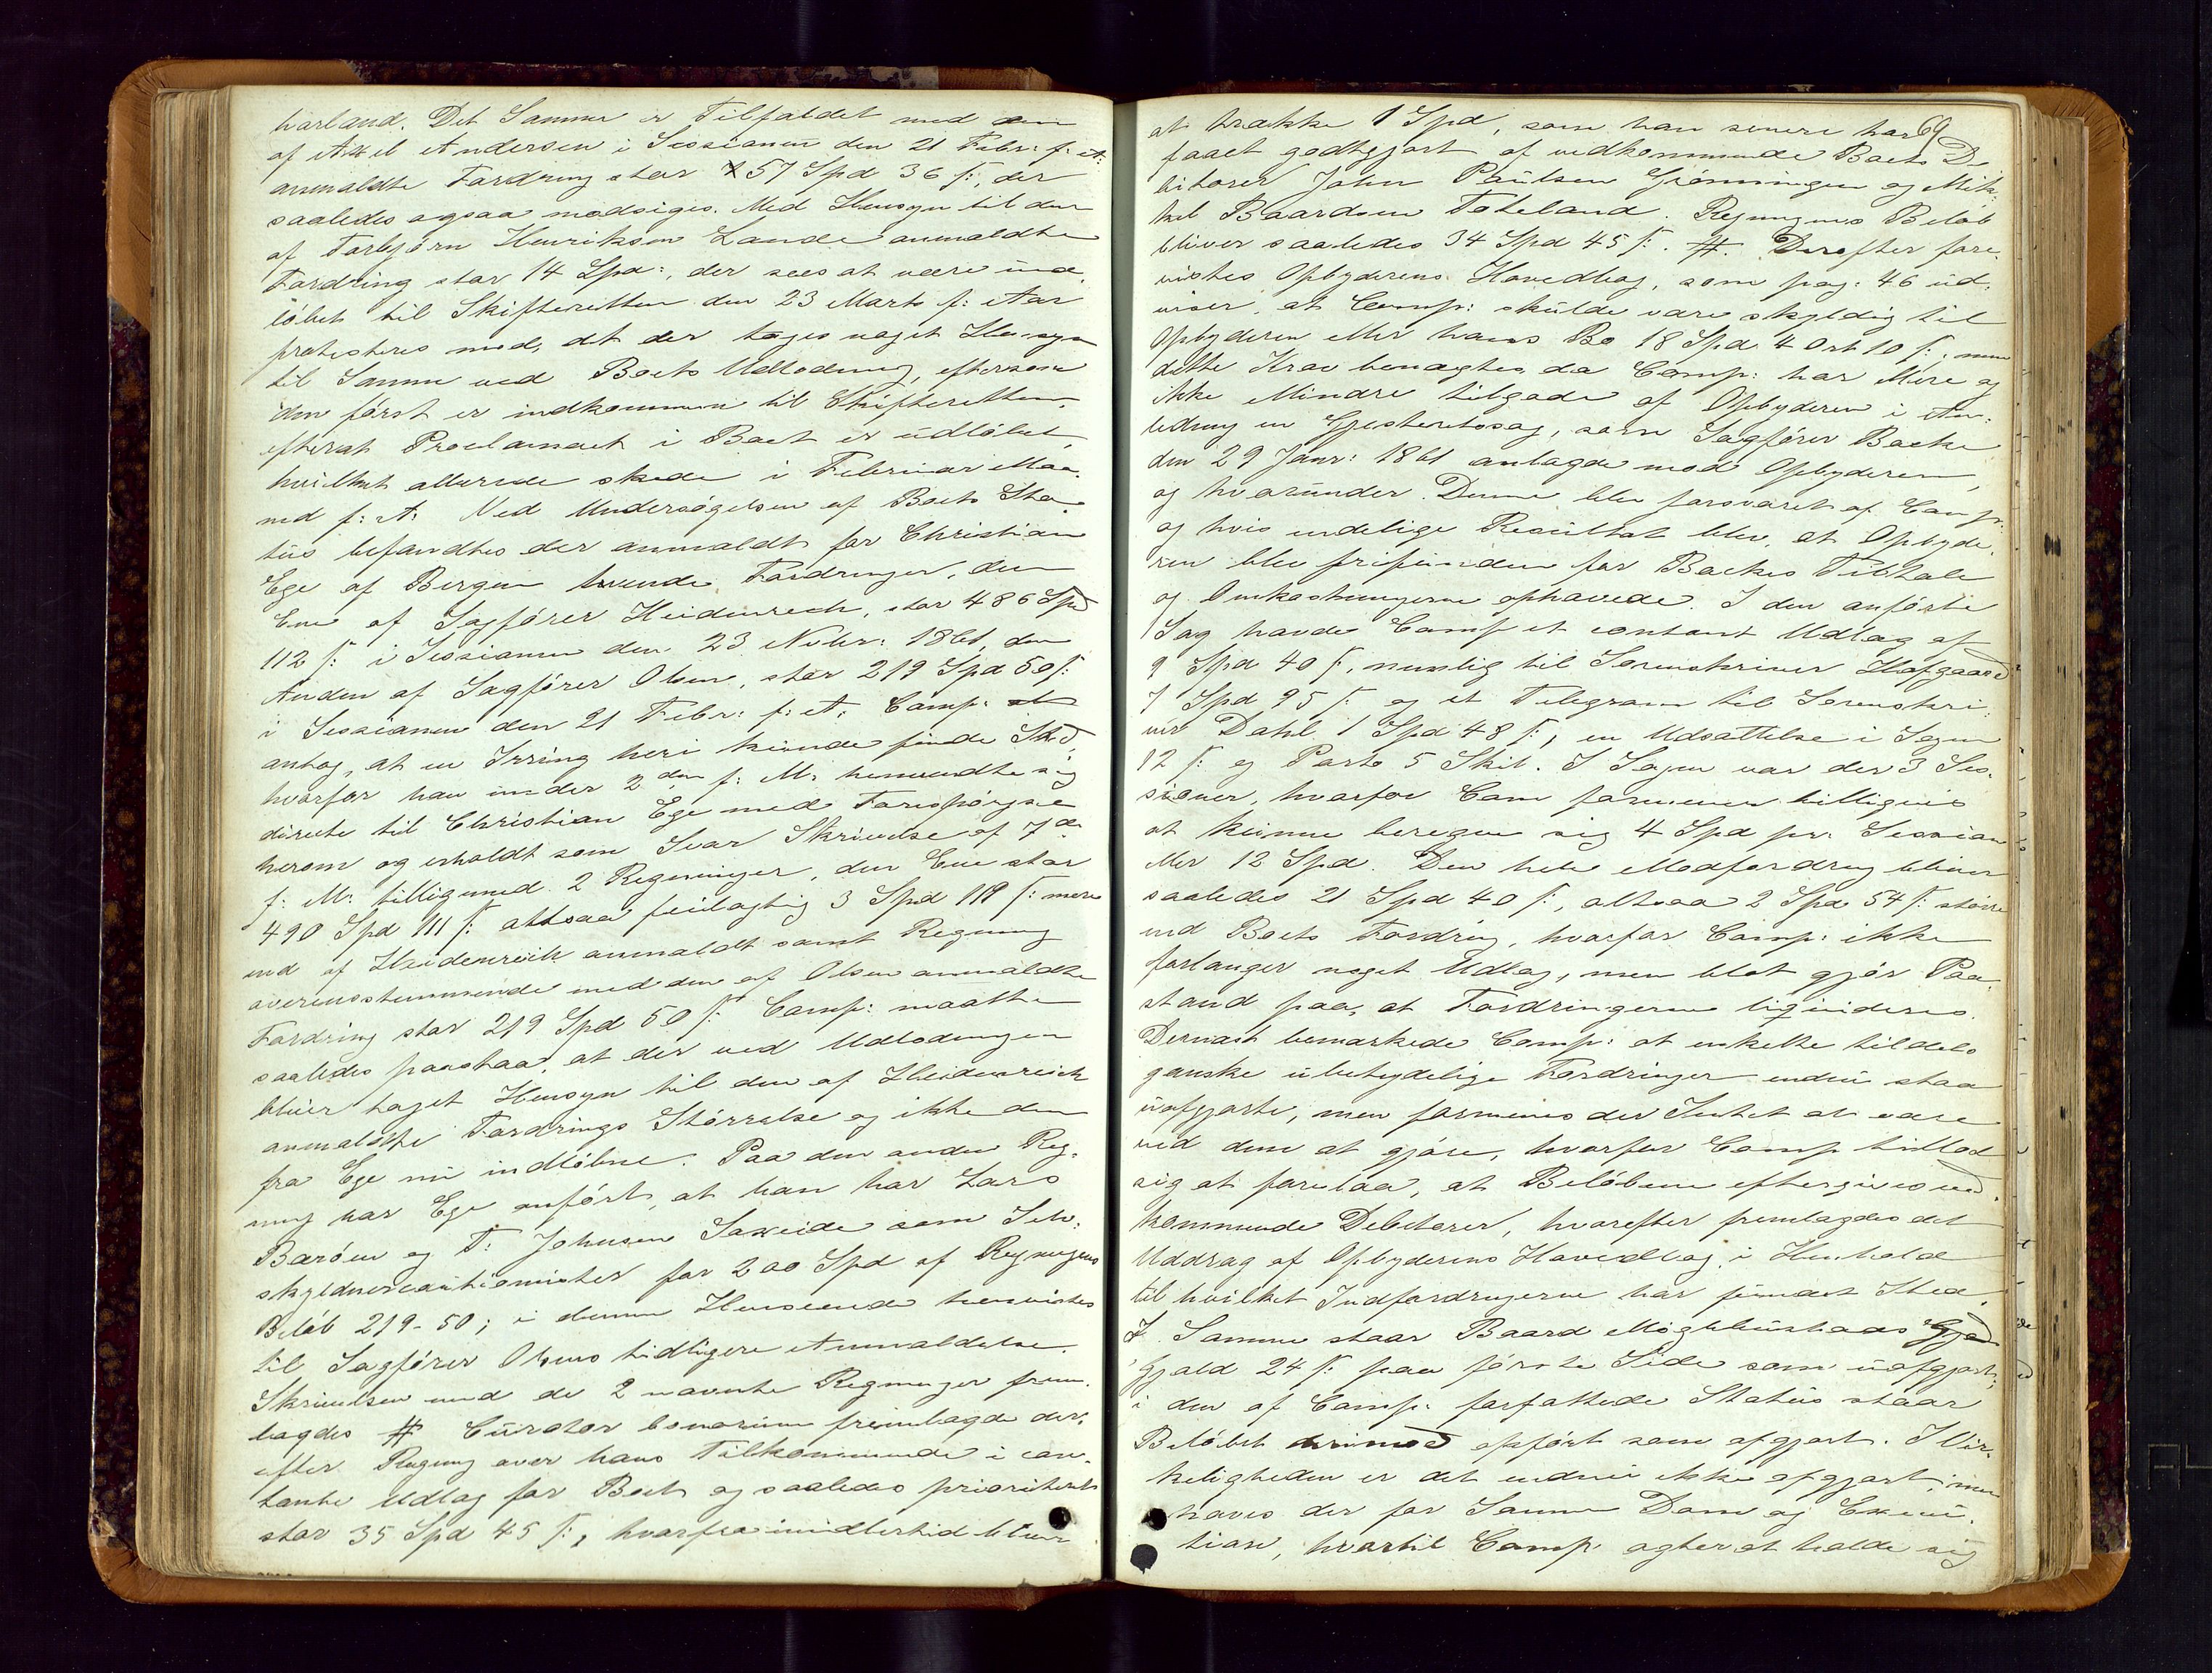 harland. Det Samme er Tilfældet med den
af Axel Andersen i Sessionen den 21 Febr: f: A:
anmeldte Fordring stor 57 Spd 36 s:, der
saaledes ogsaa modsiges. Med Hensyn til den
af Torbjørn Henriksen Lande anmeldte
Fordring stor 14 Spd:, der sees at være ind¬
løbet til Skifteretten den 23 Marts f: Aar
protesteres mod, at der tages noget Hensyn
til Samme ved Boets Udlodning, eftersom
den først er indkommen til Skifteretten,
efterat Proclamaet i Boet er udløbet,
hvilket allerede skede i Februar Maa¬
ned f: A: Ved Undersøgelsen af Boets Sta¬
tus befandtes der anmeldt for Christian
Ege af Bergen tvende Fordringer, den
Ene af Sagfører Heidenreich, stor 486 Spd
112 s: i Sessionen den 23 Novbr: 1861, den
Anden af Sagfører Olsen, stor 219 Spd 50 s:
i Sessionen den 21 Febr: f: A: Comp:
antog, at en Irring heri kunde finde Sted,
hvorfor han under 2den f: M: henvendte sig
directe til Christian Ege med Forespørgsel
herom og erholdt som Svar Skrivelse af 7de
f: M: tilligemed 2 Regninger, den Ene stor
490 Spd 111 s: altsaa feilagtig 3 Spd 119 s: mere
end af Heidenreich anmeldt samt Regning
overensstemmende med den af Olsen anmeldte
Fordring stor 219 Spd 50 s: Comp: maatte
saaledes paastaa, at der ved Udlodningen
bliver taget Hensyn til den af Heidenreich
anmeldte Fordrings Størrelse og ikke den
fra Ege nu indløbne. Paa den anden Reg¬
ning har Ege anført, at han har Lars
Barøen og T: Johnsen Saxeide som Selv¬
skyldnercautionister for 200 Spd af Regningens
Beløb 219-50; i denne Henseende henvistes
til Sagfører Olsens tidligere Anmeldelse.
Skrivelsen med de 2 nævnte Regninger frem¬
lagdes # Curator bonorum fremlagde der¬
efter Regning over hans Tilkommende i con¬
tante Udlæg for Boet og saaledes prioriteret
stor 35 Spd 45 s:, hvorfra imidlertid bliver
69
at trække 1 Spd, som han senere har
faaet godtgjort af vedkommende Boets De
bitorer John Paulsen Grønningen og Mik¬
kel Baardsen Toteland. Regningens Beløb
bliver saaledes 34 Spd 45 s:. #. Derefter fore¬
vistes Opbyderens Hovedbog, som pag: 46 ud¬
viser, at Comp: skulde være skyldig til
Opbyderen eller hans Bo 18 Spd 4 Ort 10 s:, men
dette Krav benægtes da Comp: har Mere og
ikke Mindre tilgode af Opbyderen i An¬
ledning en Gjesteretssag, som Sagfører Backe
den 29 Janr: 1861 anlagde mod Opbyderen,
og hvorunder Denne blev forsvaret af Comp:
og hvis endelige Resultat blev, at Opbyde¬
ren blev frifunden for Backes Tiltale
og Omkostningerne ophævede. I den anførte
Sag havde Comp et contant Udlæg af
9 Spd 40 s:, nemlig til Sorenskriver Hofgaard
7 Spd 95 s: og et Telegram til Sorenskri¬
ver Dahl 1 Spd 48 s:, en Udsættelse i Sagen
12 s: og Porto 5 Skil. I Sagen var der 3 Ses¬
sioner, hvorfor Com formener billigviis
at kunne beregne sig 4 Spd pr: Session
eller 12 Spd. Den hele Modfordring bliver
saaledes 21 Spd 40 s:, altsaa 2 Spd 54 s: større
end Boets Fordring, hvorfor Comp: ikke
forlanger noget Udlæg, men blot gjør Paa¬
stand paa, at Fordringerne liqvideres.
Dernæst bemærkede Comp: at enkelte tildels
ganske ubetydelige Fordringer endnu staa
uafgjorte, men formenes der Intet at være
ved dem at gjøre, hvorfor Comp tillod
sig at foreslaa, at Beløbene eftergives ved¬
kommende Debitorer, hvorefter fremlagdes det
Uddrag af Opbyderens Hovedbog, i Henhold
til hvilket Indfordringerne har fundet Sted.
I Samme staar Baard Møglebustads
Gjæld 24 s: paa første Side som uafgjort;
i den af Comp: forfattede Status staar
Beløbet derimod opført som afgjort. I Vir¬
keligheden er det endnu ikke afgjort, men
haves der for Samme Dom og Execu¬
tion, hvortil Comp agter at holde sig